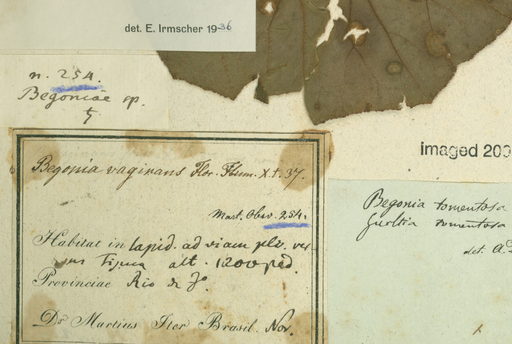 det. E. Irmscher 1936
n. 254.
Begoniae sp.
ƺ
imaged 200
Begonia vaginans Flor. Flum. X. t. 37.
Mart. Obs. 254.
Habitat in lapid. ad viam plv. ver-
sus Tijuca alt. 1200 ped.
Provinciae Rio de Jo.
Dr Martius Iter Brasil. Nov.
Begonia tomentosa
tomentosa
det. A.